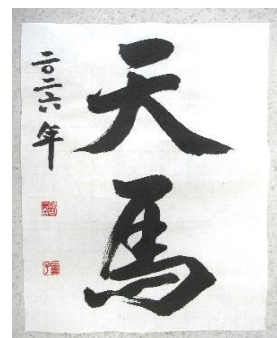 天馬
二〇二六年